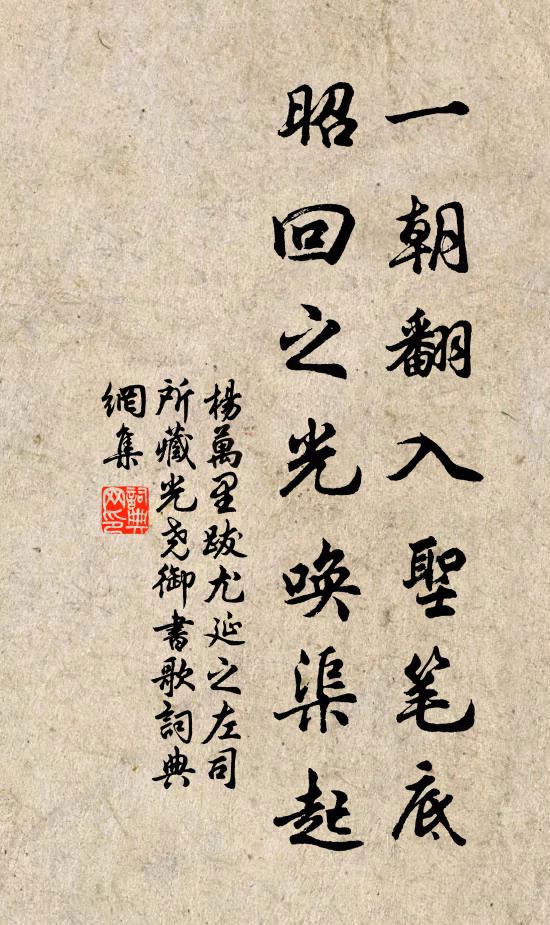 一朝翻入聖笔底
昭回之光唤渠起
楊萬里跋尤延之左司
所藏光尧御書歌詞典
網集
詞典
网印